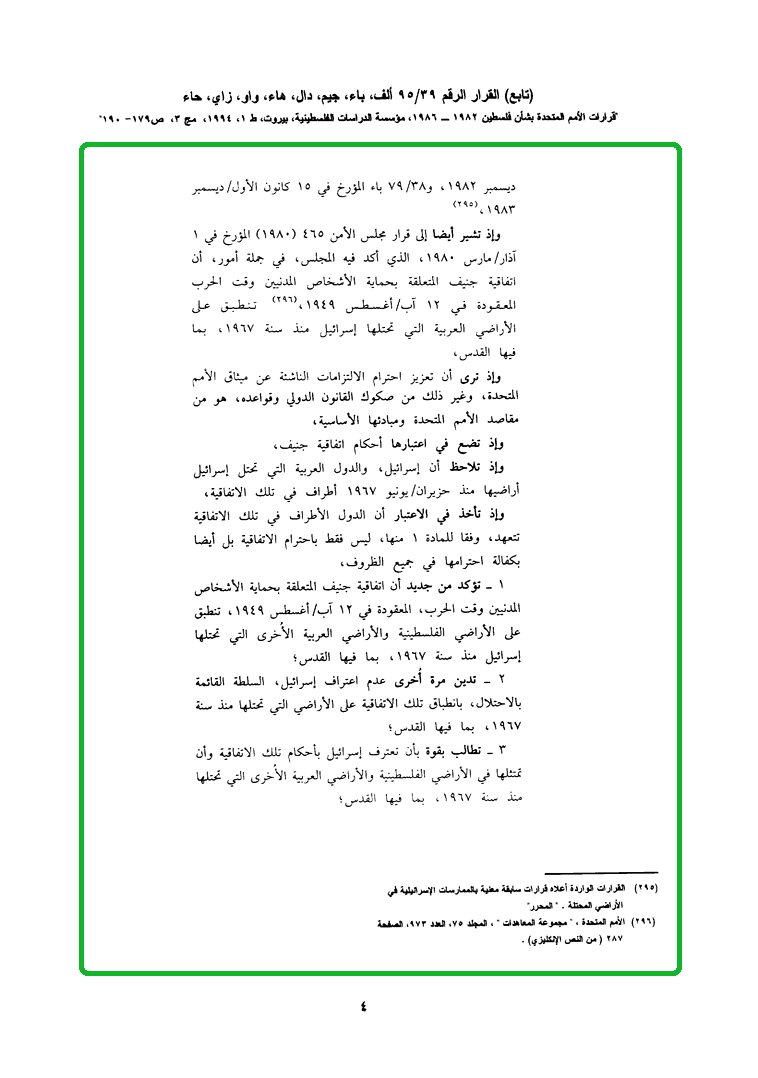 (تابع) القرار الرقم ٩٥/٣٩ ألف، باء، جيم، دال، هاء، واو، زاي، حاء
"قرارات الأمم المتحدة بشأن فلسطين ١٩٨٢ – ١٩٨٦، مؤسسة الدراسات الفلسطينية، بيروت، ط ١، ١٩٩٤، مج ٣، ص١٧٩- ١٩٠"
ديسمبر ١٩٨٢، و٧٩/٣٨ باء المؤرخ في ١٥ كانون الأول/ديسمبر
١٩٨٣،(٢٩٥)
وإذ تشير أيضا إلى قرار مجلس الأمن ٤٦٥ (١٩٨٠) المؤرخ في ١
آذار/مارس ١٩٨٠، الذي أكد فيه المجلس، في جملة أمور، أن
اتفاقية جنيف المتعلقة بحماية الأشخاص المدنيين وقت الحرب
المعقودة في ١٢ آب/أغسطس ١٩٤٩،(٢٩٦) تنطبق على
الأراضي العربية التي تحتلها إسرائيل منذ سنة ١٩٦٧، بما
فيها القدس،
وإذ ترى أن تعزيز احترام الالتزامات الناشئة عن ميثاق الأمم
المتحدة، وغير ذلك من صكوك القانون الدولي وقواعده، هو من
مقاصد الأمم المتحدة ومبادئها الأساسية،
وإذ تضع في اعتبارها أحكام اتفاقية جنيف،
وإذ تلاحظ أن إسرائيل، والدول العربية التي تحتل إسرائيل
أراضيها منذ حزيران/يونيو ١٩٦٧ أطراف في تلك الاتفاقية،
وإذ تأخذ في الاعتبار أن الدول الأطراف في تلك الاتفاقية
تتعهد، وفقا للمادة ١ منها، ليس فقط باحترام الاتفاقية بل أيضا
بكفالة احترامها في جميع الظروف،
١ – تؤكد من جديد أن اتفاقية جنيف المتعلقة بحماية الأشخاص
المدنيين وقت الحرب، المعقودة في ١٢ آب/أغسطس ١٩٤٩، تنطبق
على الأراضي الفلسطينية والأراضي العربية الأُخرى التي تحتلها
إسرائيل منذ سنة ١٩٦٧، بما فيها القدس؛
٢ – تدين مرة أُخرى عدم اعتراف إسرائيل، السلطة القائمة
بالاحتلال، بانطباق تلك الاتفاقية على الأراضي التي تحتلها منذ سنة
١٩٦٧، بما فيها القدس؛
٣ – تطالب بقوة بأن تعترف إسرائيل بأحكام تلك الاتفاقية وأن
تمتثلها في الأراضي الفلسطينية والأراضي العربية الأُخرى التي تحتلها
منذ سنة ١٩٦٧، بما فيها القدس؛
(٢٩٥) القرارات الواردة أعلاه قرارات سابقة معنية بالممارسات الإسرائيلية في
الأراضي المحتلة . " المحرر"
(٢٩٦) الأمم المتحدة ، " مجموعة المعاهدات " ، المجلد ٧٥، العدد ٩٧٣، الصفحة
٢٨٧ ( من النص الإنكليزي) .
٤